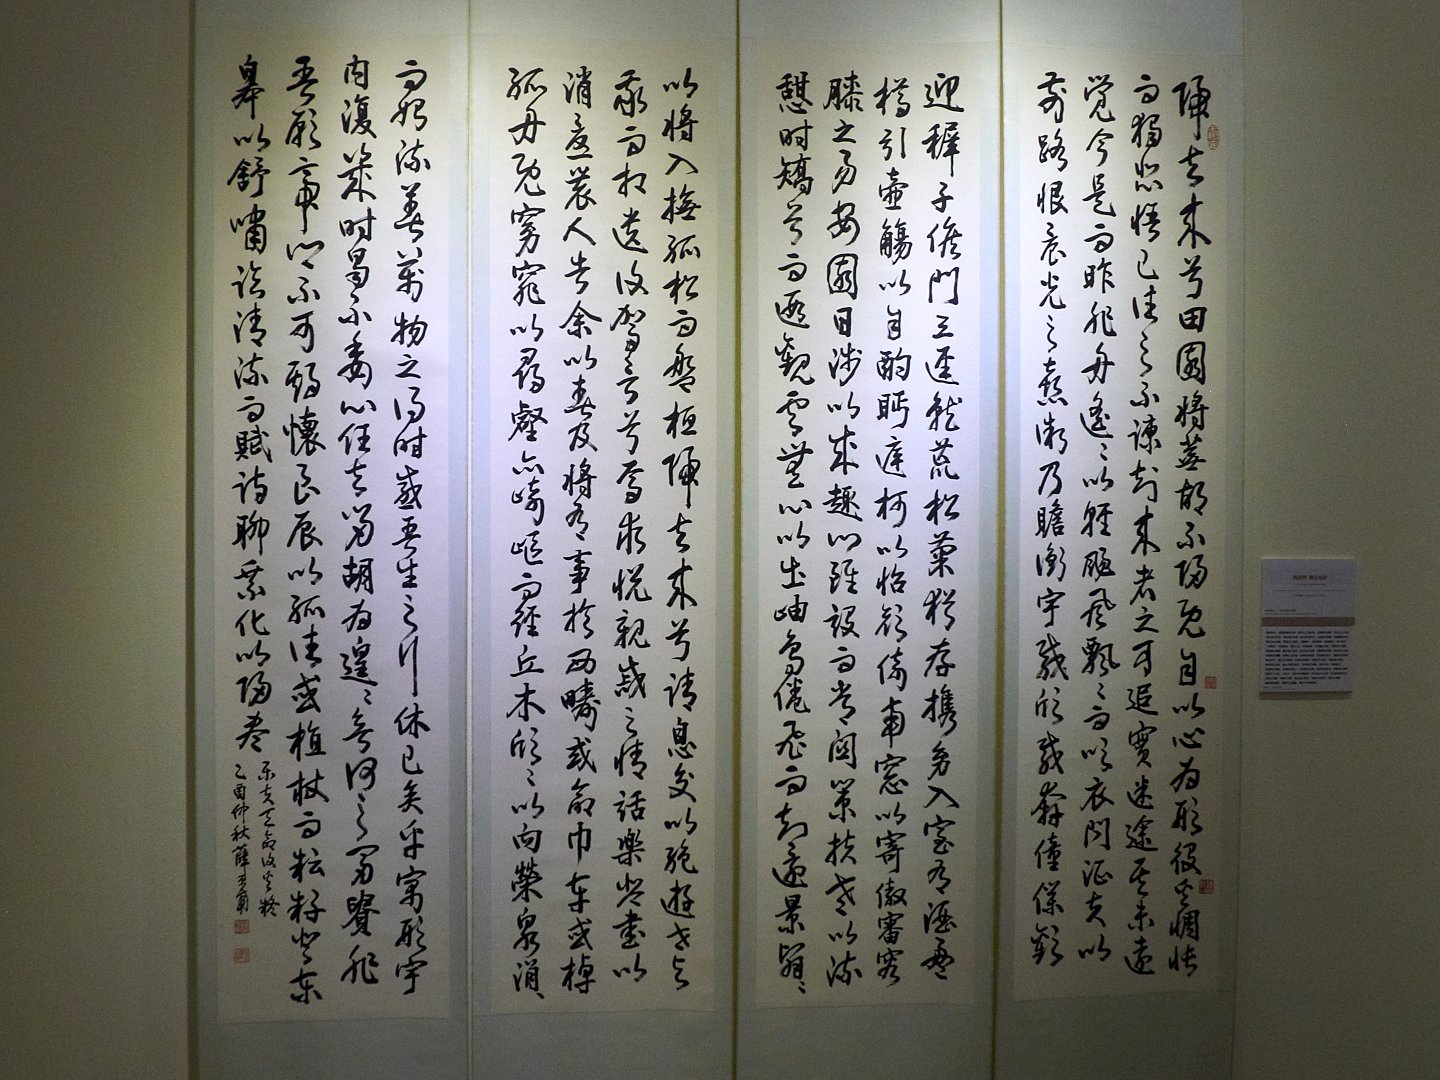 歸去来兮田園將蕪胡不歸既自以心為形役奚惆悵
而獨悲悟已往之不諫知来者之可追實迷途其未遠
覺今是而昨非舟遙〻以輕颺風飄〻而吹衣問征夫以
前路恨晨光之熹微乃瞻衡宇載欣載奔僮僕歡
迎稺子候門三逕就荒松菊猶存攜幼入室有酒盈
樽引壺觴以自酌眄庭柯以怡顏倚南窓以寄傲審容
膝之易安園日涉以成趣門雖設而常関策扶老以流
憩時矯首而遐觀雲無心以出岫鳥倦飛而知還景翳〻
以將入撫孤松而盤桓歸去来兮請息交以絶遊世與
我而相遺復駕言兮焉求悦親戚之情話樂琴書以
消憂農人告余以春及將有事於西疇或命巾車或棹
孤舟既窈窕以尋壑亦崎嶇而經丘木欣〻以向榮泉涓〻
而始流善萬物之得時感吾生之行休已矣乎寓形宇
内復幾時曷不委心任去留胡為遑〻兮何之富貴非
吾願帝鄉不可期懷良辰以孤往或植杖而耘耔登東
皋以舒嘯臨清流而賦詩聊乘化以歸盡
樂夫天命復奚疑
乙酉仲秋薛